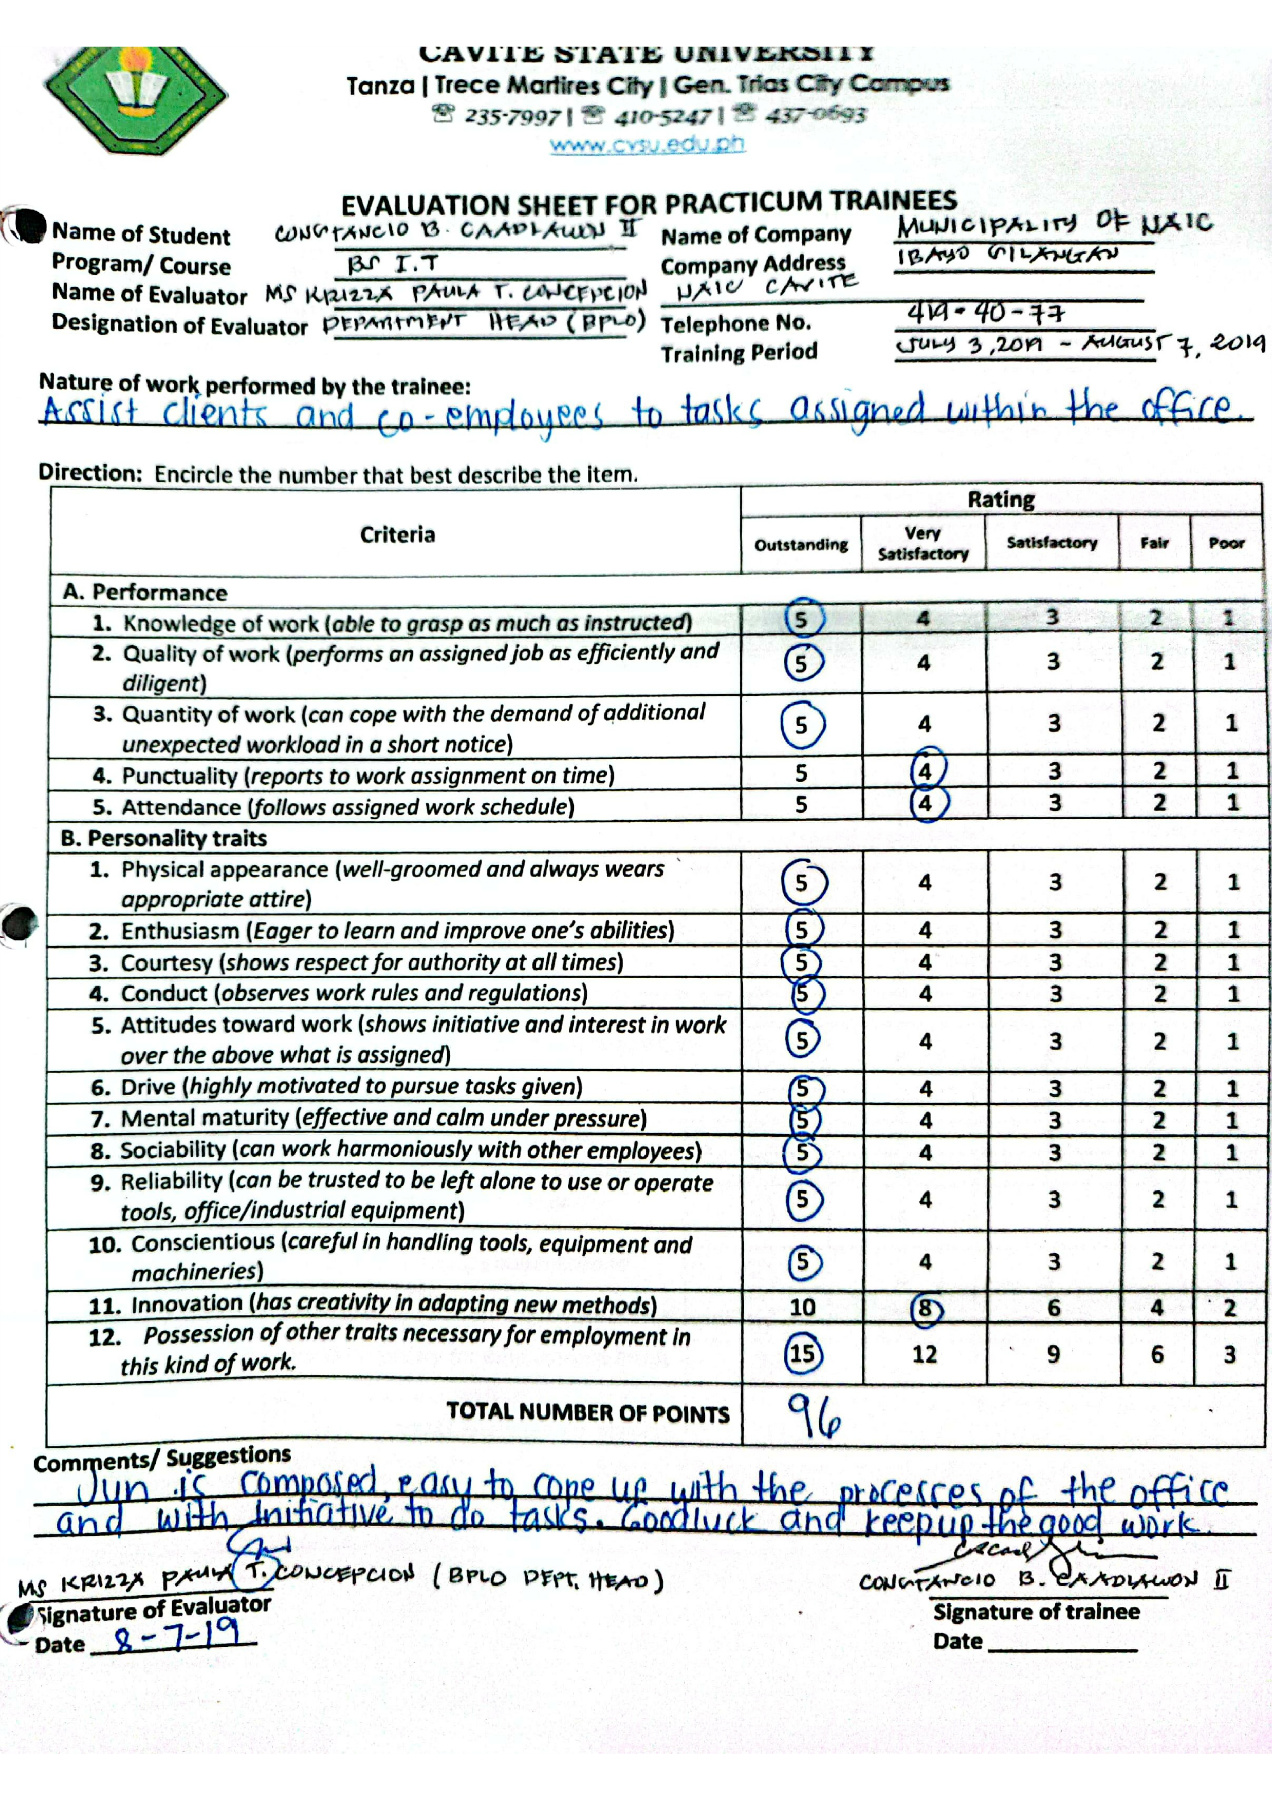 CAVITE STATE UNIVERSITY
Tanza | Trece Martires City | Gen. Trias City Campus
☏ 235-7997 | ☏ 410-5247 | ☏ 437-0693
www.cvsu.edu.ph
EVALUATION SHEET FOR PRACTICUM TRAINEES
Name of Student CONSTANCIO B. CAADLAWON II Name of Company MUNICIPALITY OF NAIC
Program/ Course BS I.T Company Address IBAYO SILANGAN
Name of Evaluator MS KRIZZA PAULA T. CONCEPCION NAIC CAVITE
Designation of Evaluator DEPARTMENT HEAD (BPLO) Telephone No. 419-40-77
Training Period JULY 3, 2019 - AUGUST 7, 2019
Nature of work performed by the trainee:
Assist clients and co-employees to tasks assigned within the office.
Direction: Encircle the number that best describe the item.
Criteria Rating
Outstanding Very Satisfactory Satisfactory Fair Poor
A. Performance
1. Knowledge of work (able to grasp as much as instructed) 5 4 3 2 1
2. Quality of work (performs an assigned job as efficiently and
diligent) 5 4 3 2 1
3. Quantity of work (can cope with the demand of additional
unexpected workload in a short notice) 5 4 3 2 1
4. Punctuality (reports to work assignment on time) 5 4 3 2 1
5. Attendance (follows assigned work schedule) 5 4 3 2 1
B. Personality traits
1. Physical appearance (well-groomed and always wears
appropriate attire) 5 4 3 2 1
2. Enthusiasm (Eager to learn and improve one's abilities) 5 4 3 2 1
3. Courtesy (shows respect for authority at all times) 5 4 3 2 1
4. Conduct (observes work rules and regulations) 5 4 3 2 1
5. Attitudes toward work (shows initiative and interest in work
over the above what is assigned) 5 4 3 2 1
6. Drive (highly motivated to pursue tasks given) 5 4 3 2 1
7. Mental maturity (effective and calm under pressure) 5 4 3 2 1
8. Sociability (can work harmoniously with other employees) 5 4 3 2 1
9. Reliability (can be trusted to be left alone to use or operate
tools, office/industrial equipment) 5 4 3 2 1
10. Conscientious (careful in handling tools, equipment and
machineries) 5 4 3 2 1
11. Innovation (has creativity in adapting new methods) 10 8 6 4 2
12. Possession of other traits necessary for employment in
this kind of work. 15 12 9 6 3
TOTAL NUMBER OF POINTS 96
Comments/ Suggestions
Jun is composed, easy to cope up with the processes of the office
and with initiative to do tasks. Goodluck and keep up the good work.
MS KRIZZA PAULA T. CONCEPCION (BPLO DEPT. HEAD) CONSTANCIO B. CAADLAWON II
Signature of Evaluator Signature of trainee
Date 8-7-19 Date